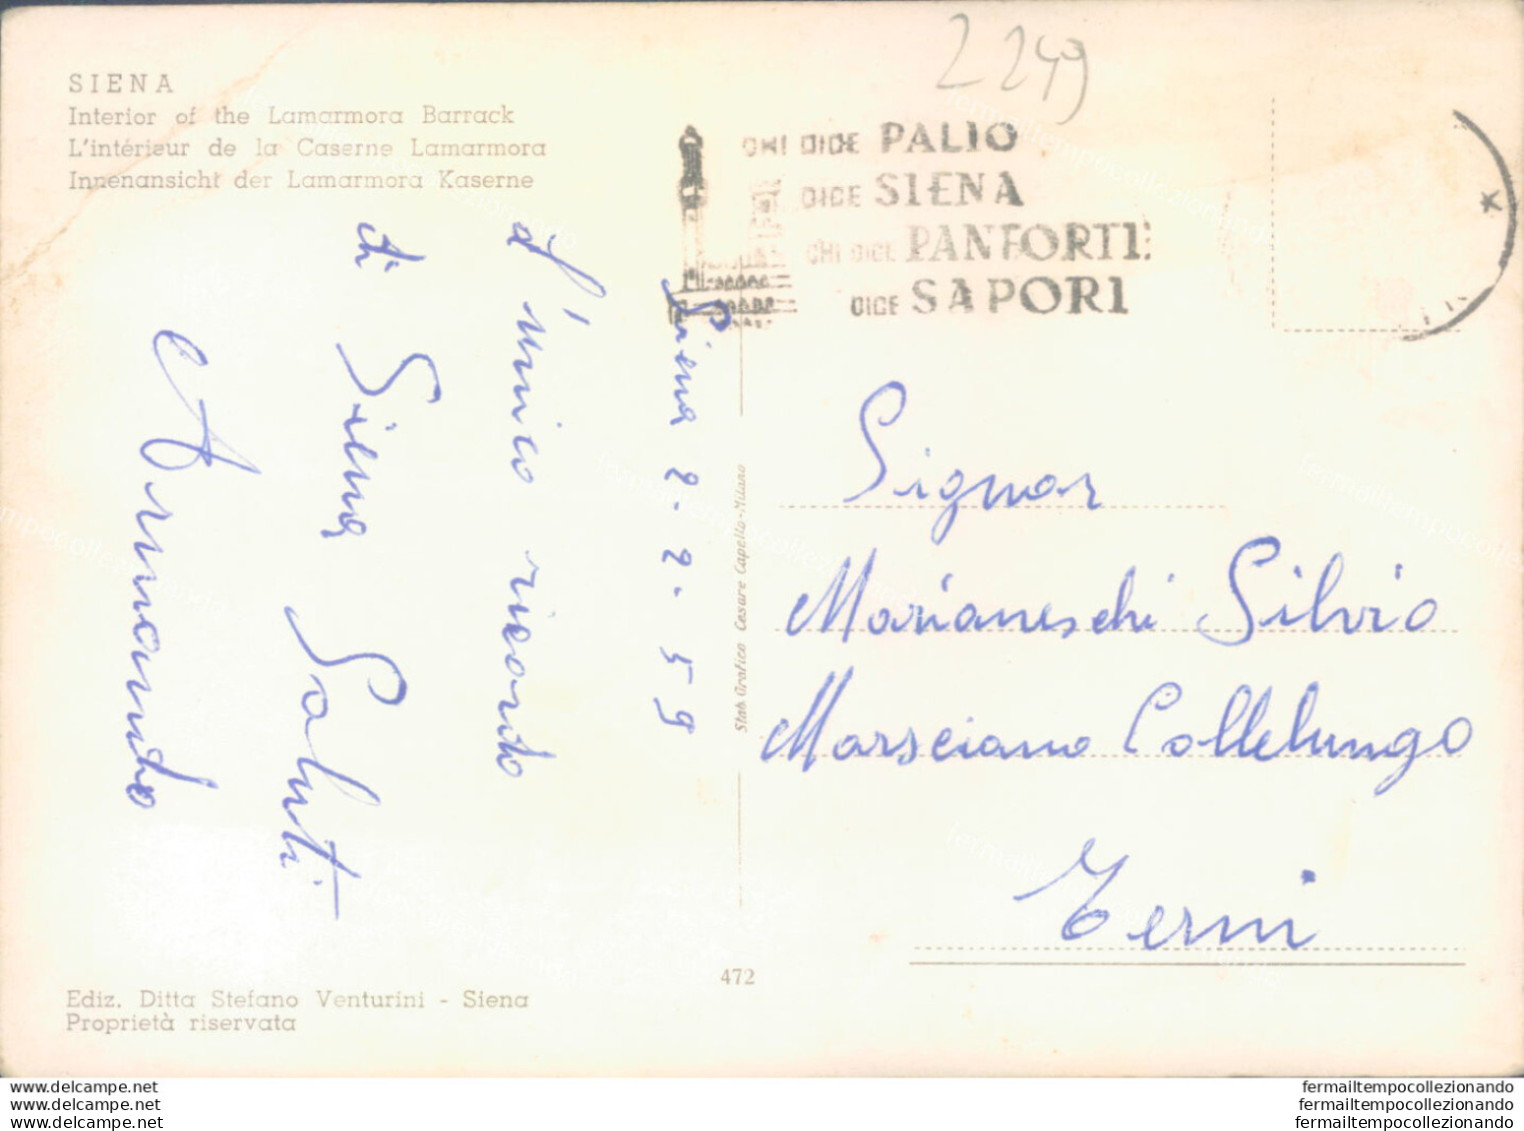 2249
SIENA
Interior of the Lamarmora Barrack
L'intérieur de la Caserne Lamarmora
Innenansicht der Lamarmora Kaserne
CHI DICE PALIO
DICE SIENA
CHI DICE PANFORTE
DICE SAPORI
Siena 2-2-59
L'unico ricordo
di Siena Saluti
Armando
Stab. Grafico Cesare Capello-Milano
Signor
Marianeschi Silvio
Marsciano Collelungo
Terni
472
Ediz. Ditta Stefano Venturini - Siena
Proprietà riservata
www.delcampe.net
www.delcampe.net
www.delcampe.net
fermailtempocollezionando
fermailtempocollezionando
fermailtempocollezionando